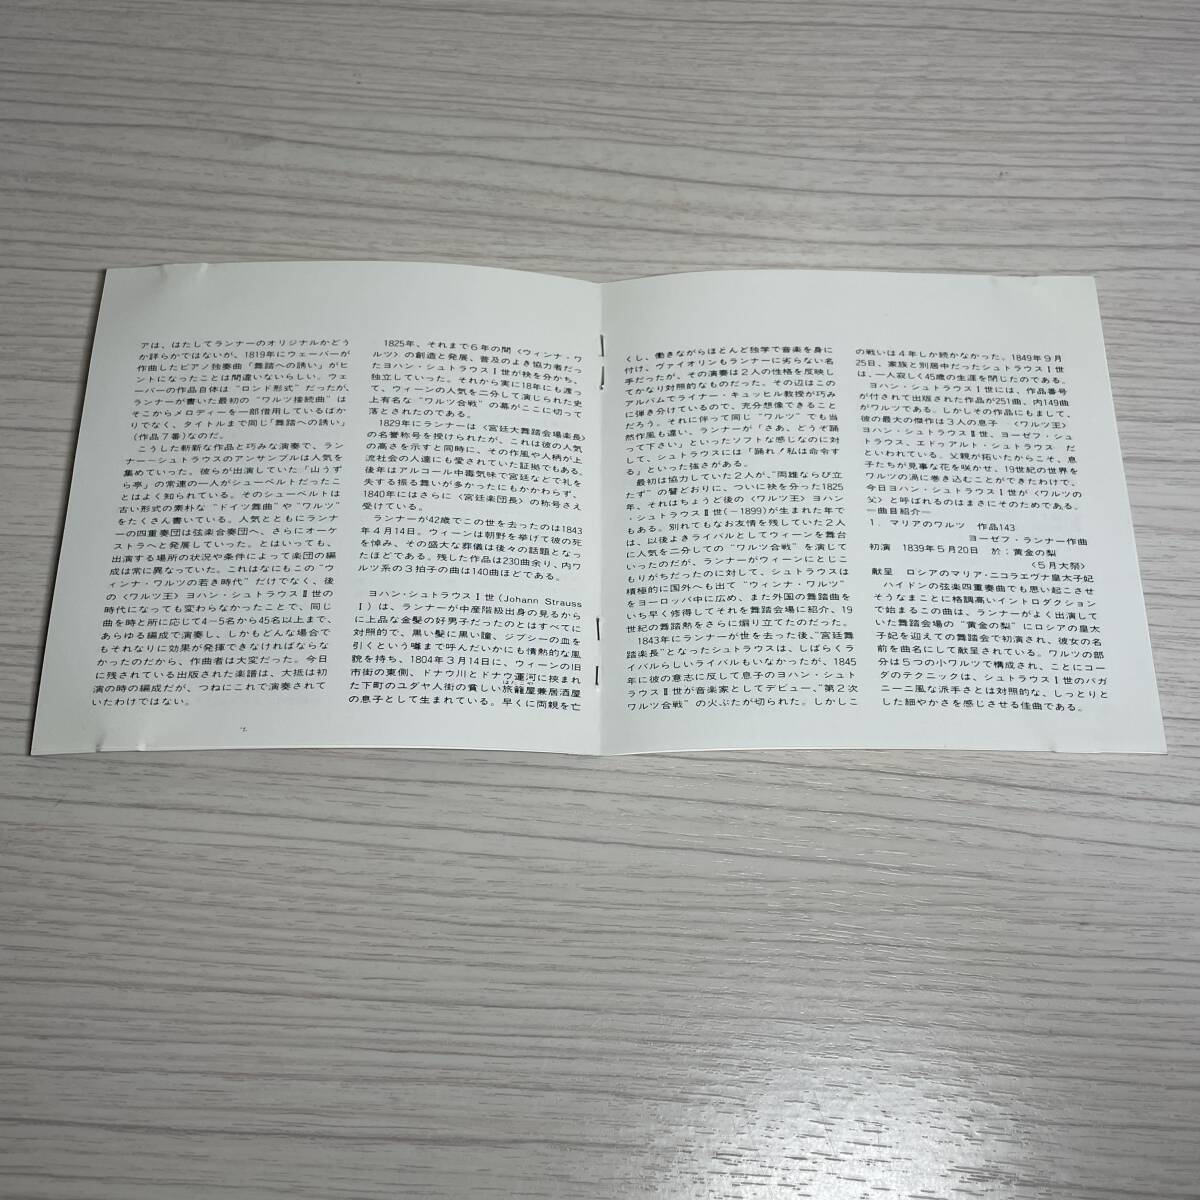 アは、はたしてランナーのオリジナルかどう
か詳らかではないが、1819年にウェーバーが
作曲したピアノ独奏曲「舞踏への誘い」がヒ
ントになったことは間違いないらしい。ウェ
ーバーの作品自体は“ロンド形式”だったが、
ランナーが書いた最初の“ワルツ接続曲”は
そこからメロディーを一部借用しているばか
りでなく、タイトルまで同じ「舞踏への誘い」
(作品7番)なのだ。
こうした斬新な作品と巧みな演奏で、ラン
ナー=シュトラウスのアンサンブルは人気を
集めていった。彼らが出演していた「山うず
ら亭」の常連の一人がシューベルトだったこ
とはよく知られている。そのシューベルトは
古い形式の素朴な“ドイツ舞曲”や“ワルツ”
をたくさん書いている。人気とともにランナ
ーの四重奏団は弦楽合奏団へ、さらにオーケ
ストラへと発展していった。とはいっても、
出演する場所の状況や条件によって楽団の編
成は常に異なっていた。これはなにもこの“ウ
ィンナ・ワルツの若き時代”だけでなく、後
の〈ワルツ王〉ヨハン・シュトラウスⅡ世の
時代になっても変わらなかったことで、同じ
曲を時と所に応じて4−5名から45名以上まで、
あらゆる編成で演奏し、しかもどんな場合で
もそれなりに効果が発揮できなければならな
かったのだから、作曲者は大変だった。今日
に残されている出版された楽譜は、大抵は初
演の時の編成だが、つねにこれで演奏されて
いたわけではない。
1825年、それまで6年の間〈ウィンナ・ワ
ルツ〉の創造と発展、普及のよき協力者だっ
たヨハン・シュトラウスⅠ世が袂を分かち、
独立していった。それから実に18年にも渡っ
て、ウィーンの人気を二分して演じられた史
上有名な“ワルツ合戦”の幕がここに切って
落とされたのである。
1829年にランナーは〈宮廷大舞踏会場楽長〉
の名誉称号を授けられたが、これは彼の人気
の高さを示すと同時に、その作風や人柄が上
流社会の人達にも愛されていた証拠でもある。
後年はアルコール中毒気味で宮廷などで礼を
失する振る舞いが多かったにもかかわらず、
1840年にはさらに〈宮廷楽団長〉の称号さえ
受けている。
ランナーが42歳でこの世を去ったのは1843
年4月14日。ウィーンは朝野を挙げて彼の死
を悼み、その盛大な葬儀は後々の話題となっ
たほどである。残した作品は230曲余り、内ワ
ルツ系の3拍子の曲は140曲ほどである。
ヨハン・シュトラウスⅠ世(Johann Strauss
Ⅰ)は、ランナーが中産階級出身の見るから
に上品な金髪の好男子だったのとはすべてに
対照的で、黒い髪に黒い瞳、ジプシーの血を
引くという噂まで呼んだいかにも情熱的な風
貌を持ち、1804年3月14日に、ウィーンの旧
市街の東側、ドナウ川とドナウ運河に挟まれ
た下町のユダヤ人街の貧しい旅籠屋兼居酒屋
はたごや
の息子として生まれている。早くに両親を亡
くし、働きながらほとんど独学で音楽を身に
付け、ヴァイオリンもランナーに劣らない名
手だったが、その演奏は2人の性格を反映し
てかなり対照的なものだった。その辺はこの
アルバムでライナー・キュッヒル教授が巧み
に弾き分けているので、充分想像できること
だろう。それに伴って同じ“ワルツ”でも当
然作風も違い、ランナーが「さあ、どうぞ踊
って下さい」といったソフトな感じなのに対
して、シュトラウスには「踊れ!私は命令す
る」といった強さがある。
最初は協力していた2人が、“両雄ならび立
たず”の譬どおりに、ついに袂を分った1825
年、それはちょうど後の〈ワルツ王〉ヨハン
・シュトラウスⅡ世(−1899)が生まれた年で
もある。別れてもなお友情を残していた2人
は、以後よきライバルとしてウィーンを舞台
に人気を二分しての“ワルツ合戦”を演じて
いったのだが、ランナーがウィーンにとじこ
もりがちだったのに対して、シュトラウスは
積極的に国外へも出て“ウィンナ・ワルツ”
をヨーロッパ中に広め、また外国の舞踏曲を
いち早く修得してそれを舞踏会場に紹介、19
世紀の舞踏熱をさらに煽り立てたのだった。
1843年にランナーが世を去った後、“宮廷舞
踏楽長”となったシュトラウスは、しばらくラ
イバルらしいライバルもいなかったが、1845
年に彼の意志に反して息子のヨハン・シュト
ラウスⅡ世が音楽家としてデビュー、“第2次
ワルツ合戦”の火ぶたが切られた。しかしこ
の戦いは4年しか続かなかった。1849年9月
25日、家族と別居中だったシュトラウスⅠ世
は、一人寂しく45歳の生涯を閉じたのである。
ヨハン・シュトラウスⅠ世には、作品番号
が付されて出版された作品が251曲、内149曲
がワルツである。しかしその作品にもまして、
彼の最大の傑作は3人の息子・〈ワルツ王〉
ヨハン・シュトラウスⅡ世、ヨーゼフ・シュ
トラウス、エドゥアルト・シュトラウス だ
といわれている。父親が拓いたからこそ、息
子たちが見事な花を咲かせ、19世紀の世界を
ワルツの渦に巻き込むことができたわけで、
今日ヨハン・シュトラウスⅠ世が〈ワルツの
父〉と呼ばれるのはまさにそのためである。
—曲目紹介—
1. マリアのワルツ 作品143
ヨーゼフ・ランナー作曲
初演 1839年5月20日 於:黄金の梨
〈5月大祭〉
献呈 ロシアのマリア・ニコラエヴナ皇太子妃
ハイドンの弦楽四重奏曲でも思い起こさせ
そうなまことに格調高いイントロダクション
で始まるこの曲は、ランナーがよく出演して
いた舞踏会場の“黄金の梨”にロシアの皇太
子妃を迎えての舞踏会で初演され、彼女の名
前を曲名にして献呈されている。ワルツの部
分は5つの小ワルツで構成され、ことにコー
ダのテクニックは、シュトラウスⅠ世のパガ
ニーニ風な派手さとは対照的な、しっとりと
した細やかさを感じさせる佳曲である。